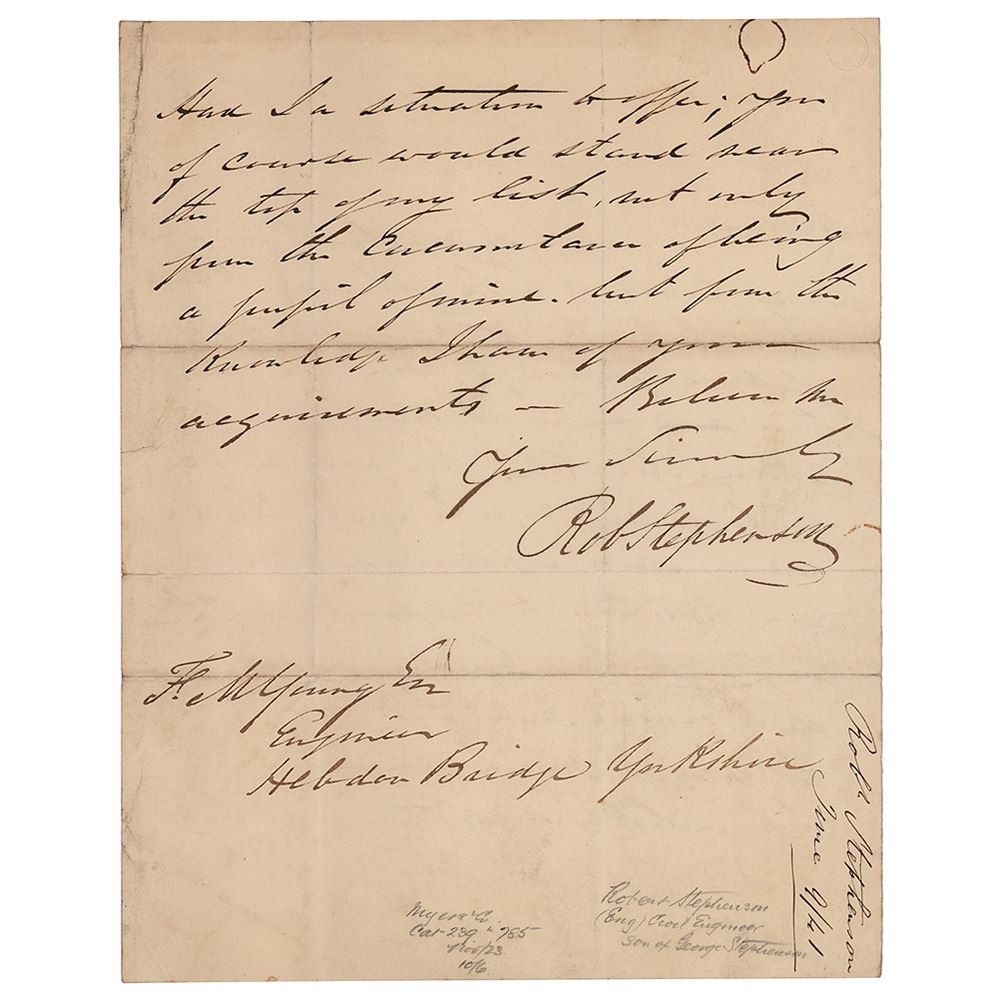 Had I a situation to offer; you
of course would stand near
the top of my list, not only
from the Circumstance of being
a pupil of mine. but from the
Knowledge I have of your
acquirements — Believe Me
Your Sincerely
Rob Stephenson
F. M Young Esq
Engineer
Hebdon Bridge Yorkshire
Robt. Stephenson
June 9/41
Myers & Co.
Cat- 239 " 785
Nov/23.
10/6.
Robert Stephenson
(Eng) Civil Engineer
son of George Stephenson